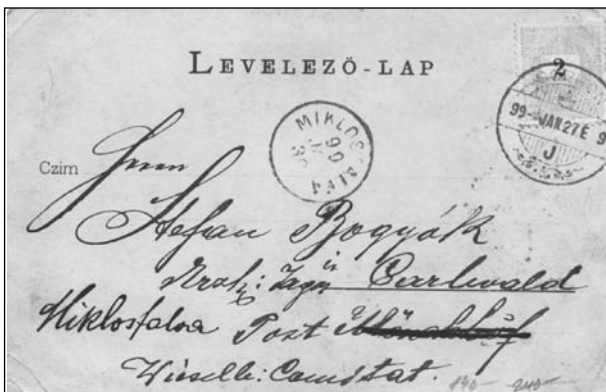 LEVELEZŐ-LAP
2
99-JAN.27.E 9
J
MIKLOSFALVA
99
Czim Herrn
Stefan Bogyák
in
Carlwald
Miklosfalva Post
Wieselb: Comitat.
140 - 240 -